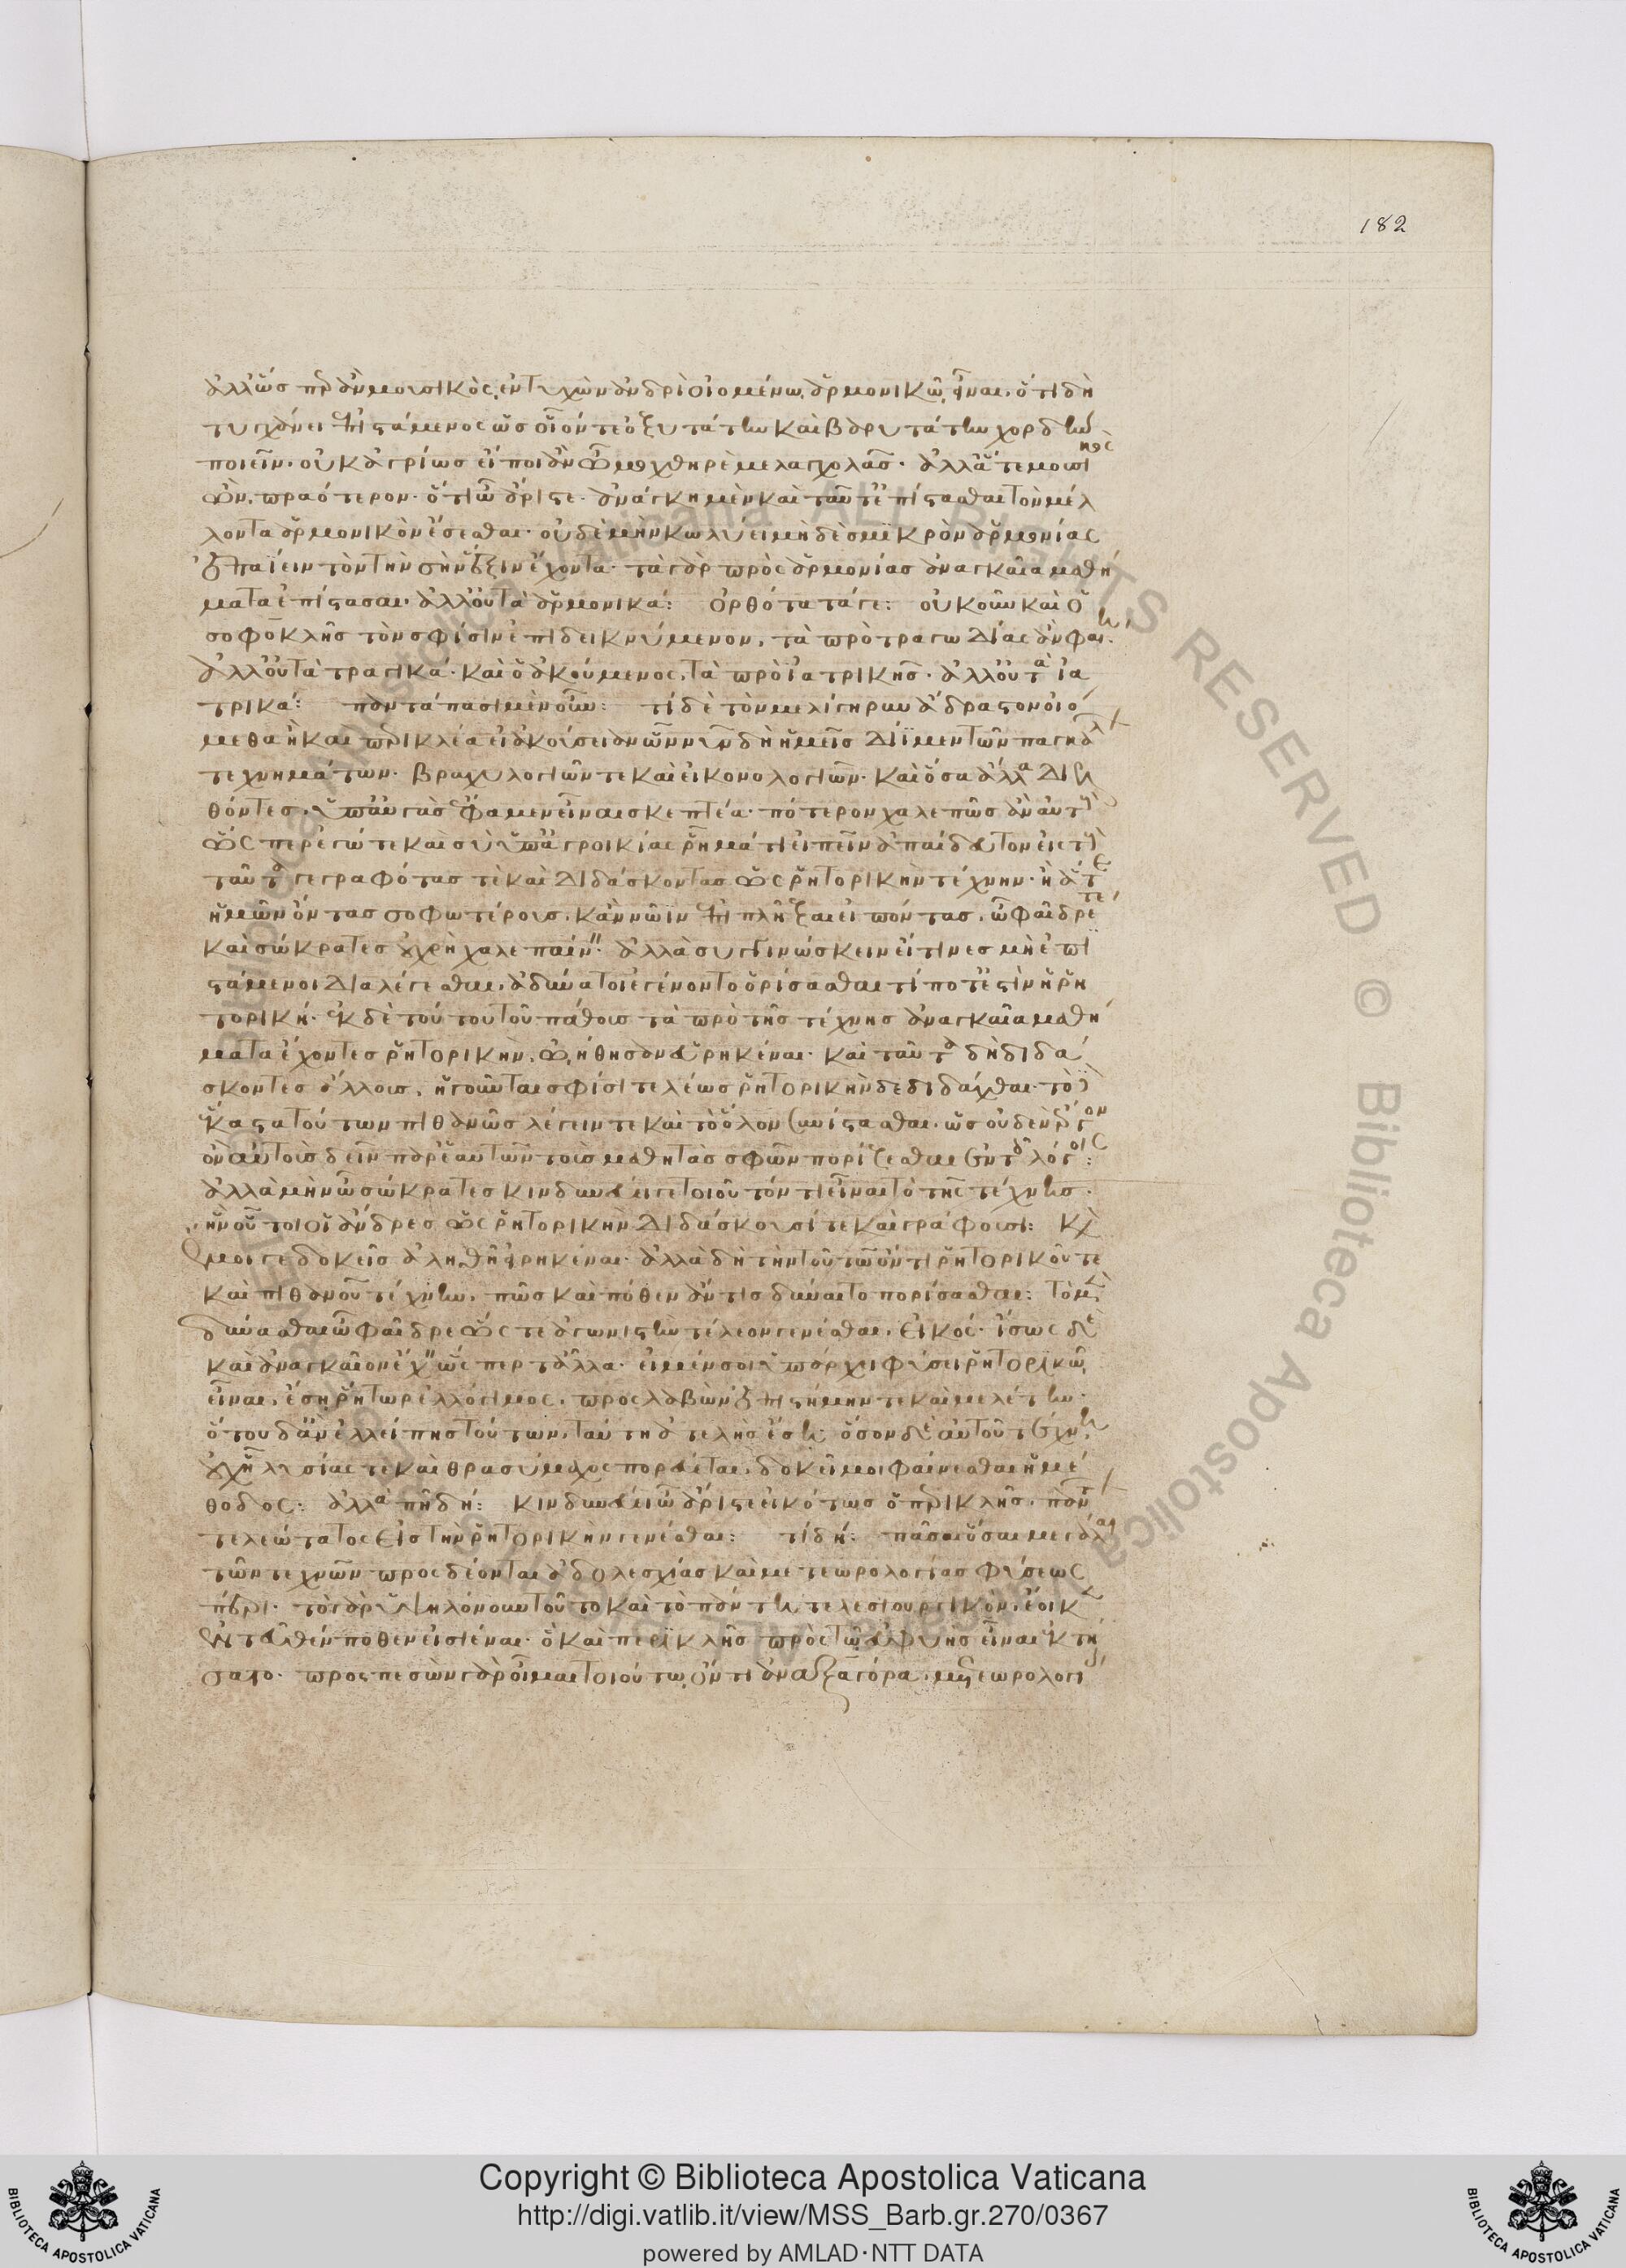 182
ἀλλ' ὥσπερ ἂν μουσικὸς, ἐντυχὼν ἀνδρὶ οἰομένῳ ἁρμονικῷ εἶναι, ὅτι δὴ
τυγχάνει ἐπιστάμενος ὡς οἷόν τε ὀξυτάτην καὶ βαρυτάτην χορδὴν
ποιεῖν· οὐκ ἀγρίως εἴποι ἂν ὦ μοχθηρὲ μελαγχολᾶς· ἀλλ' ἅτε μουσικὸς
ὢν, πραότερον· ὅτι ὦ ἄριστε· ἀνάγκη μὲν καὶ ταῦτ' ἐπίστασθαι τὸν μέλ
λοντα ἁρμονικὸν ἔσεσθαι· οὐδὲ μὴν κωλύει μηδὲ σμικρὸν ἁρμονίας
ἐπαΐειν τὸν τὴν σὴν ἕξιν ἔχοντα· τὰ γὰρ πρὸς ἁρμονίας ἀναγκαῖα μαθή
ματα ἐπίστασαι· ἀλλ' οὐ τὰ ἁρμονικά: ὀρθότατά γε: οὐκοῦν καὶ ὁ
σοφοκλῆς τὸν σφίσιν ἐπιδεικνύμενον, τὰ πρὸ τραγωδίας ἂν φαίη.
ἀλλ' οὐ τὰ τραγικά· καὶ ὁ ἀκούμενος, τὰ πρὸ ἰατρικῆς· ἀλλ' οὐ τὰ ἰα
τρικά: παντάπασι μὲν οὖν: τί δὲ τὸν μελίγηρυν ἄδραστον οἰό
μεθα ἢ καὶ περικλέα εἰ ἀκούσειαν ὧν νῦν δὴ ἡμεῖς διῄμεν τῶν παγκάλ
τεχνημάτων· βραχυλογιῶν τε καὶ εἰκονολογιῶν· καὶ ὅσα ἄλλα διελ
θόντες, ὑπ' αὐγὰς ἔφαμεν εἶναι σκεπτέα· πότερον χαλεπῶς ἂν αὐτοὺς
ὥσπερ ἐγώ τε καὶ σὺ ὑπ' ἀγροικίας ῥῆμά τι εἰπεῖν ἀπαίδευτον εἰς τοὺς
ταῦτα γεγραφότας τὲ καὶ διδάσκοντας ὡς ῥητορικὴν τέχνην· ἢ ἅτε
ἡμῶν ὄντας σοφωτέρους, κἂν νῶϊν ἐπιπλῆξαι εἰπόντας, ὦ φαῖδρέ τε
καὶ σώκρατες οὐ χρὴ χαλεπαίνειν· ἀλλὰ συγγινώσκειν εἴ τινες μὴ ἐπι
στάμενοι διαλέγεσθαι, ἀδύνατοι ἐγένοντο ὁρίσασθαι τί ποτ' ἔστιν ἡ ῥη
τορική· ἐκ δὲ τούτου τοῦ πάθους τὰ πρὸ τῆς τέχνης ἀναγκαῖα μαθή
ματα ἔχοντες ῥητορικὴν, ᾠήθησαν εὑρηκέναι· καὶ ταῦτα δὴ διδά
σκοντες ἄλλους, ἡγοῦνται σφίσι τελέως ῥητορικὴν δεδιδάχθαι· τὸ δὲ
ἕκαστα τούτων πιθανῶς λέγειν τε καὶ τὸ ὅλον συνίστασθαι, ὡς οὐδὲν ἔργον
ὂν αὐτοὺς δεῖν παρ' ἑαυτῶν τοὺς μαθητὰς σφῶν πορίζεσθαι ἐν τοῖς λόγοις:
ἀλλὰ μὴν ὦ σώκρατες κινδυνεύει γε τοιοῦτόν τι εἶναι τὸ τῆς τέχνης.
ἣν οὗτοι οἱ ἄνδρες ὡς ῥητορικὴν διδάσκουσί τε καὶ γράφουσι: καὶ
ἔμοιγε δοκεῖς ἀληθῆ εἰρηκέναι· ἀλλὰ δὴ τὴν τοῦ τῷ ὄντι ῥητορικοῦ τε
καὶ πιθανοῦ τέχνην, πῶς καὶ πόθεν ἄν τις δύναιτο πορίσασθαι: τὸ μὲν
δύνασθαι ὦ φαῖδρε ὥστε ἀγωνιστὴν τέλεον γενέσθαι, εἰκός· ἴσως δὲ
καὶ ἀναγκαῖον ἔχειν ὥσπερ τἆλλα· εἰ μέν σοι ὑπάρχει φύσει ῥητορικῷ
εἶναι, ἔσῃ ῥήτωρ ἐλλόγιμος, προσλαβὼν ἐπιστήμην τε καὶ μελέτην·
ὅτου δ' ἂν ἐλλείπῃς τούτων, ταύτῃ ἀτελὴς ἔσῃ· ὅσον δὲ αὐτοῦ τέχνη,
οὐχ ᾗ λυσίας τε καὶ θρασύμαχος πορεύεται, δοκεῖ μοι φαίνεσθαι ἡ μέ
θοδος: ἀλλὰ πῇ δή: κινδυνεύει ὦ ἄριστε εἰκότως ὁ περικλῆς, πάντ
τελεώτατος εἰς τὴν ῥητορικὴν γενέσθαι: τί δή: πᾶσαι ὅσαι μεγάλαι
τῶν τεχνῶν προσδέονται ἀδολεσχίας καὶ μετεωρολογίας φύσεως
πέρι· τὸ γὰρ ὑψηλόνουν τοῦτο καὶ τὸ πάντῃ τελεσιουργικὸν, ἔοικεν
ἐντεῦθέν ποθεν εἰσιέναι· ὃ καὶ περικλῆς πρὸς τῷ εὐφυὴς εἶναι ἐκτή
σατο· προσπεσὼν γὰρ οἶμαι τοιούτῳ ὄντι ἀναξαγόρᾳ, μετεωρολογί
Copyright © Biblioteca Apostolica Vaticana
http://digi.vatlib.it/view/MSS_Barb.gr.270/0367
powered by AMLAD·NTT DATA